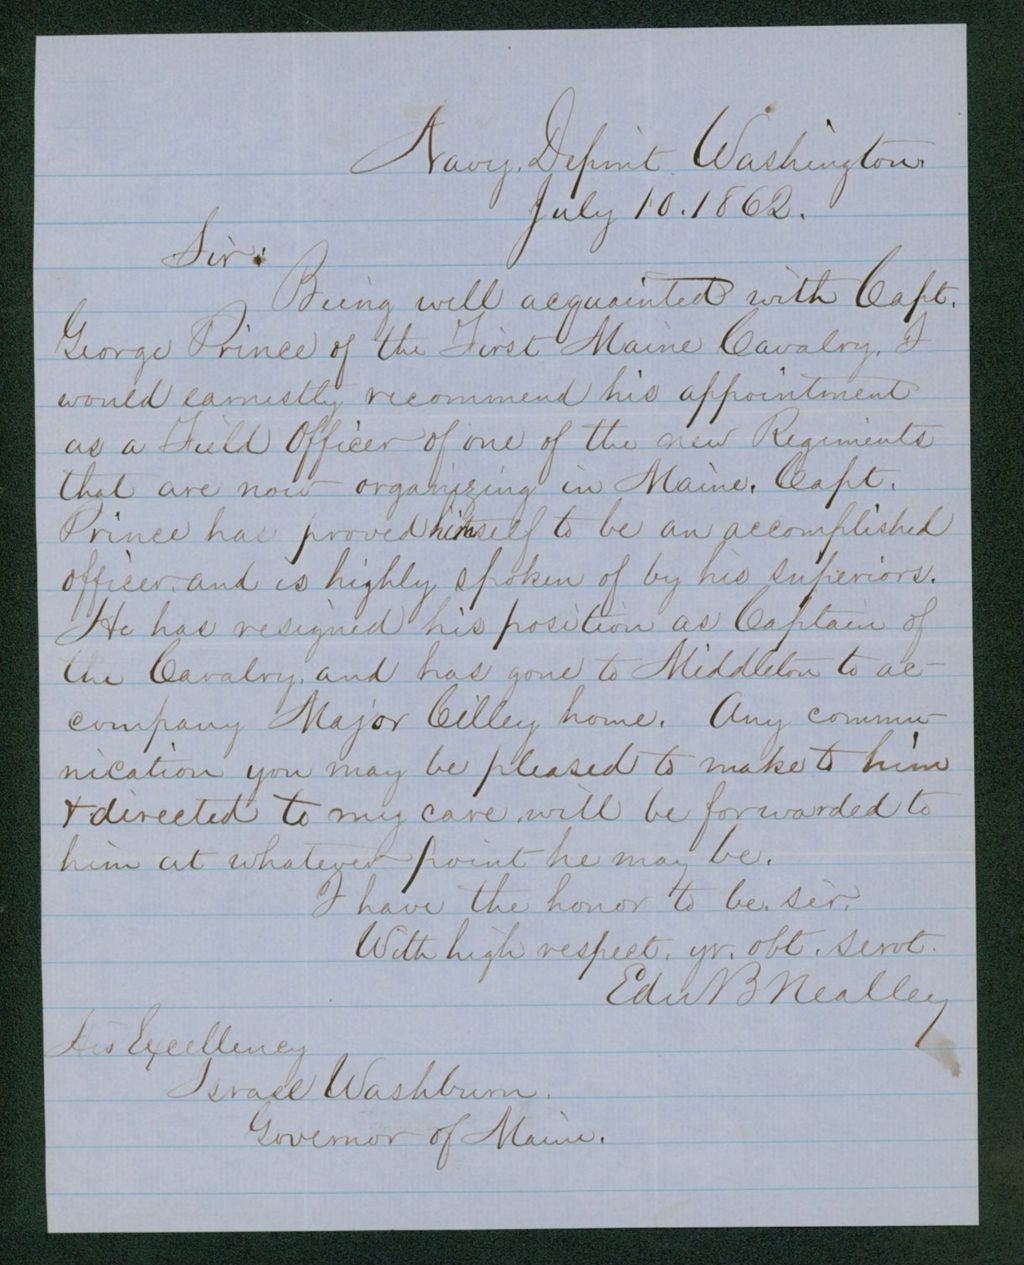 Navy Depmt Washington.
July 10. 1862.
Sir:
Being well acquainted with Capt.
George Prince of the First Maine Cavalry, I
would earnestly recommend his appointment
as a Field Officer of one of the new Regiments
that are now organizing in Maine. Capt.
Prince has proved himself to be an accomplished
officer and is highly spoken of by his superiors.
He has resigned his position as Captain of
the Cavalry, and has gone to Middleton to ac-
company Major Cilley home. Any commu-
nication you may be pleased to make to him
& directed to my care, will be forwarded to
him at whatever point he may be.
I have the honor to be, sir,
With high respect, yr. obt. servt.
Edw B Nealley
His Excellency
Israel Washburn.
Governor of Maine.